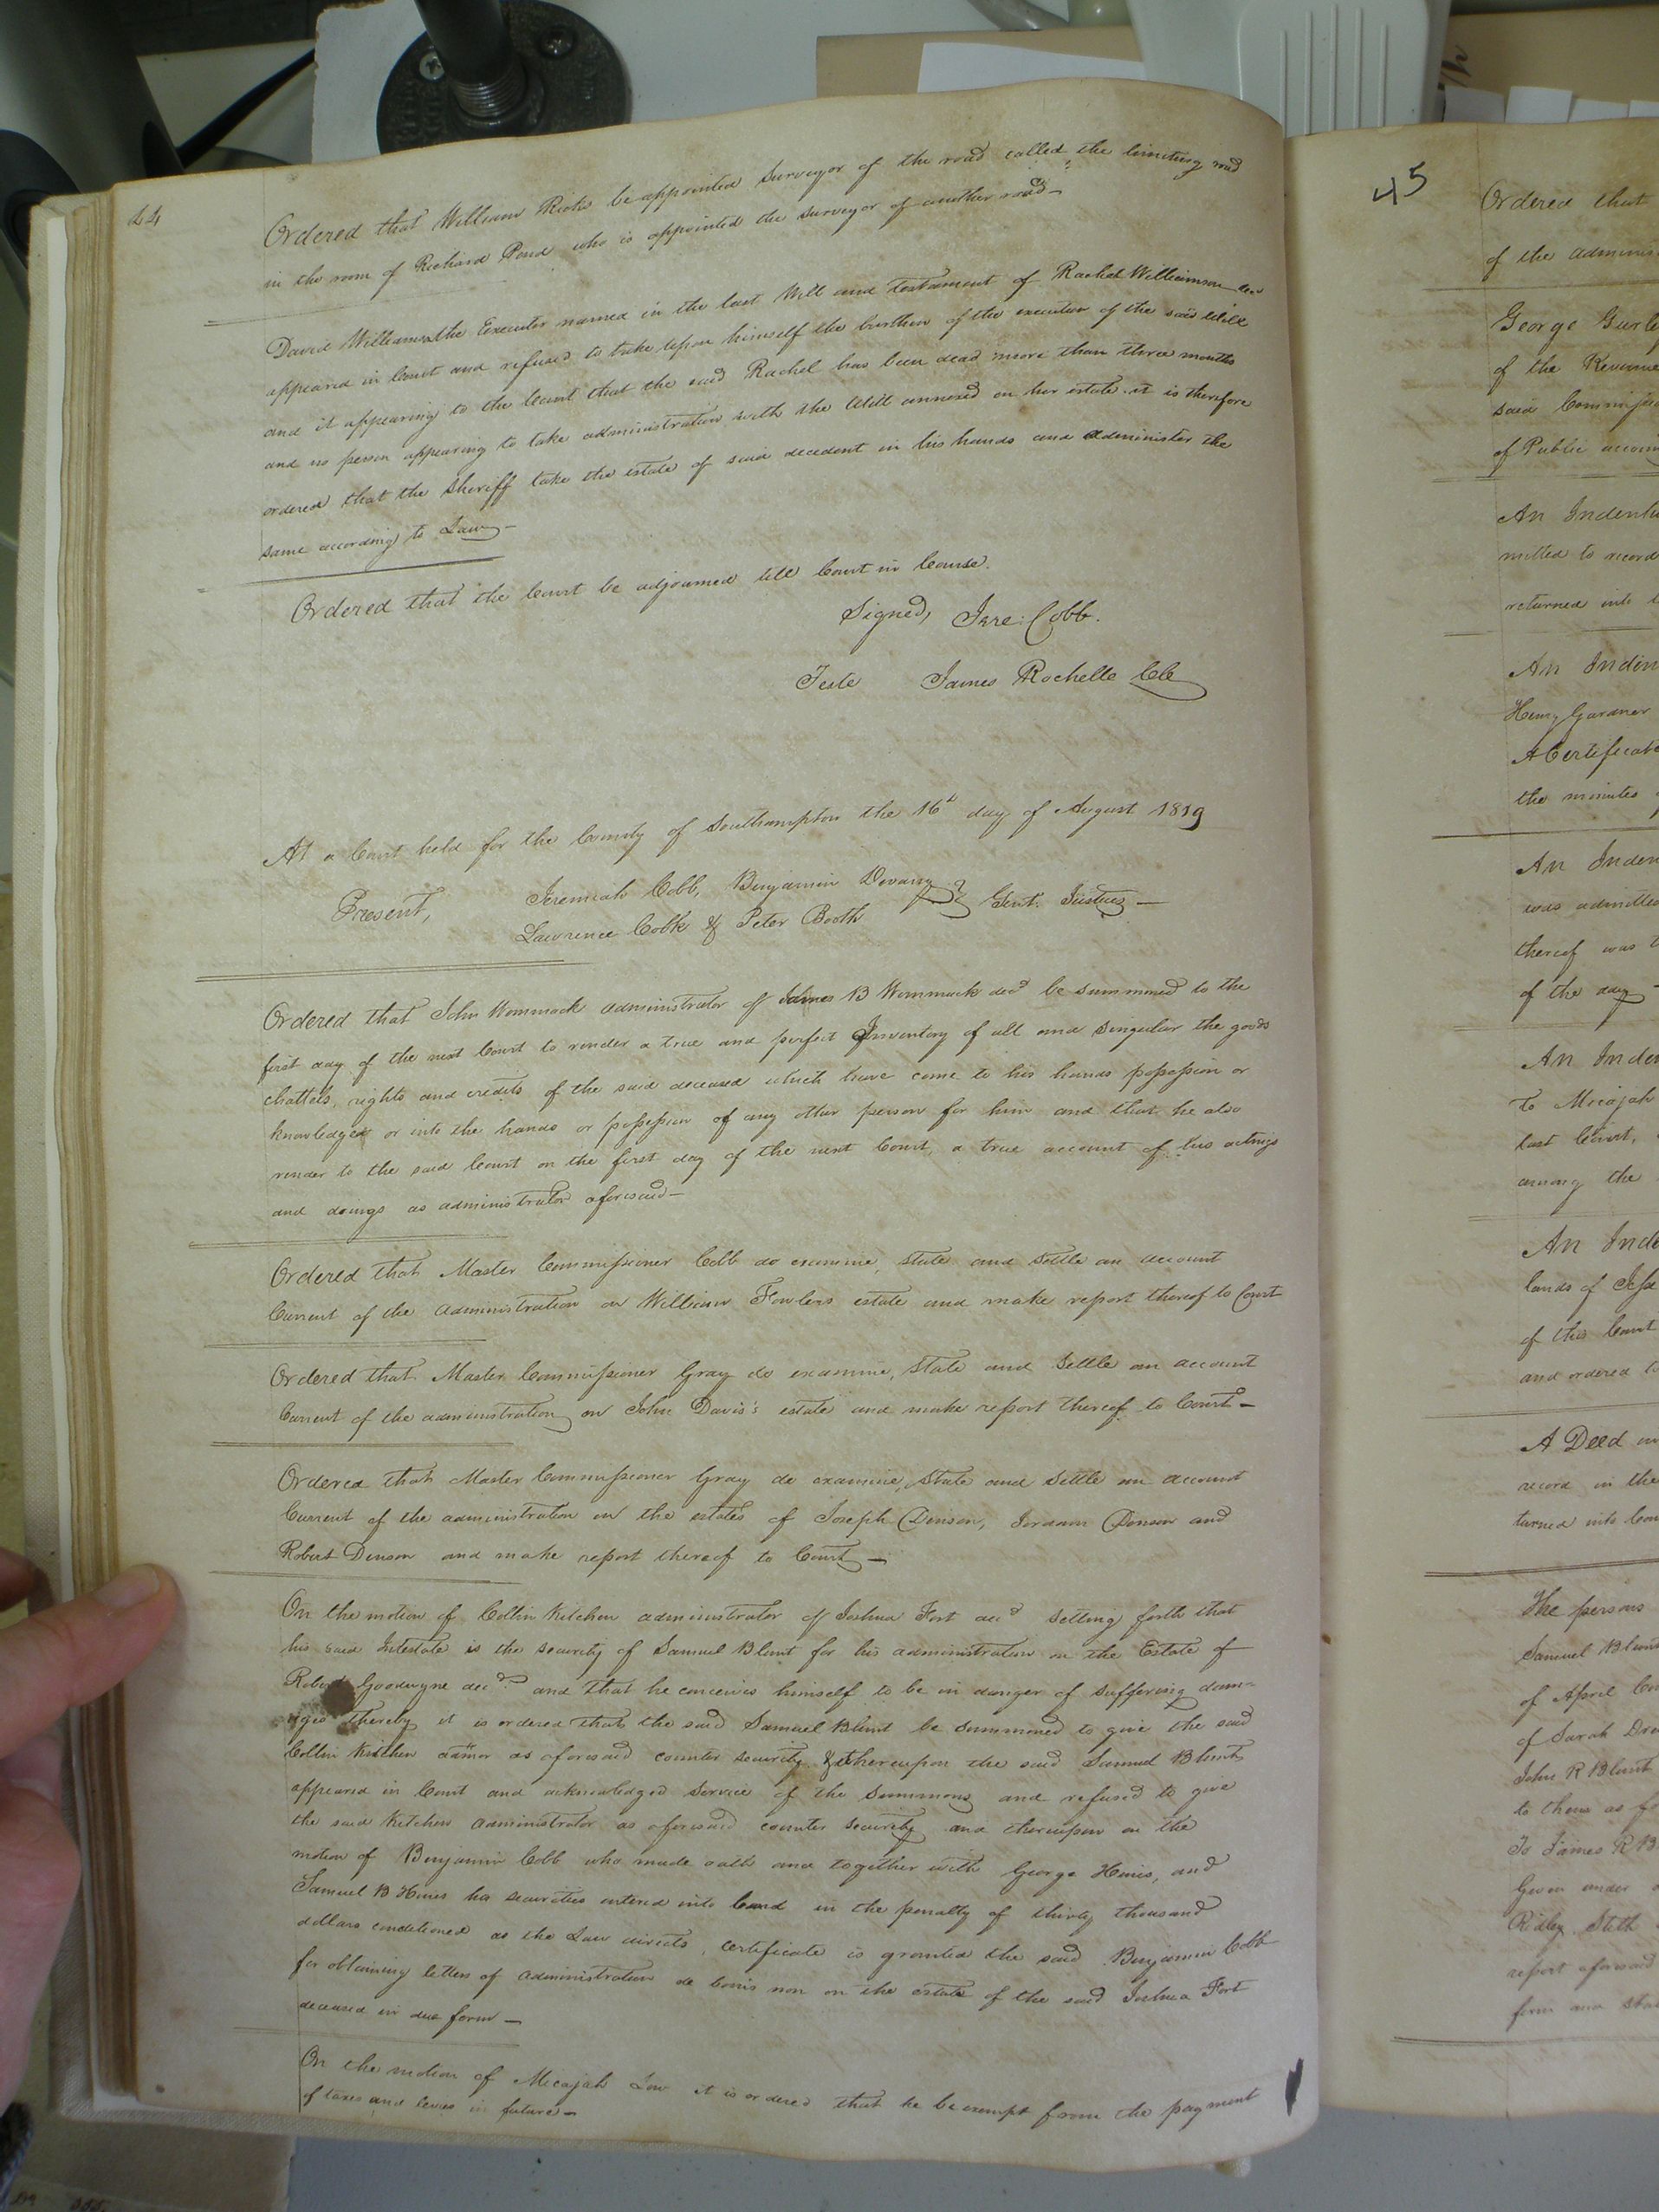 44
Ordered that William Ricks be appointed Surveyor of the road called the road
in the room of Richard Pond who is appointed the Surveyor of another road—
David Williams the Executor named in the last Will and testament of Rachel Williamson decd
appeared in Court and refused to take upon himself the burthen of the execution of the said Will
and it appearing to the Court that the said Rachel has been dead more than three months
and no person appearing to take administration with the Will annexed on her estate it is therefore
ordered that the Sheriff take the estate of said decedent in his hands and administer the
same according to Law—
Ordered that the Court be adjourned till Court in Course.
Signed, Jere: Cobb.
Teste James Rochelle Clk
At a Court held for the County of Southampton the 16th day of August 1819
Present, Jeremiah Cobb, Benjamin Devany
Lawrence Cook & Peter Booth } Gent. Justices—
Ordered that John Wommack administrator of James B Wommack decd be summoned to the
first day of the next Court to render a true and perfect Inventory of all and Singular the goods
chattels, rights and credits of the said deceased which have come to his hands possession or
knowledge or into the hands or possession of any other person for him and that he also
render to the said Court on the first day of the next Court, a true account of his actings
and doings as administrator aforesaid—
Ordered that Master Commissioner Cobb do examine, State and Settle an account
Current of the administration on William Fowlers estate and make report thereof to Court
Ordered that Master Commissioner Gray do examine, State and Settle an account
Current of the administration on John Davis's estate and make report thereof to Court—
Ordered that Master Commissioner Gray do examine, State and Settle an account
Current of the administration on the estates of Joseph Denson, Jordan Denson and
Robert Denson and make report thereof to Court—
On the motion of Collin Kitchen administrator of Joshua Fort decd Setting forth that
his said Intestate is the Security of Samuel Blunt for his administration on the Estate of
Robert Goodwyne decd and that he conceives himself to be in danger of Suffering dam-
ages thereby it is ordered that the said Samuel Blunt be Summoned to give the said
Collin Kitchen admor as aforesaid counter security & thereupon the said Samuel Blunt
appeared in Court and acknowledged Service of the Summons and refused to give
the said Kitchen administrator as aforesaid counter Security and thereupon on the
motion of Benjamin Cobb who made oath and together with George Hines, and
Samuel B Hines his securities entered into bond in the penalty of thirty thousand
dollars conditioned as the Law directs, certificate is granted the said Benjamin Cobb
for obtaining letters of administration de bonis non on the estate of the said Joshua Fort
deceased in due form—
On the motion of Micajah Law it is ordered that he be exempt from the payment
of taxes and levies in future—
45
Ordered that
of the adminis
George Gurle
of the Revenue
said Commissio
of Public accou
An Indentu
mitted to record
returned into
An Inden
Henry Gardner
A Certificate
the minutes
An Inden
was admitted
thereof was
of the day—
An Inden
To Micajah
last Court,
among the
An Inde
lands of Jesse
of this Court
and ordered to
A Deed
record in the
turned into Cou
The persons
Samuel Blunt
of April Co
of Sarah Dre
John R Blunt
to them as fo
To James R B
Given under
Ridley, Steth
report aforesaid
form and sta